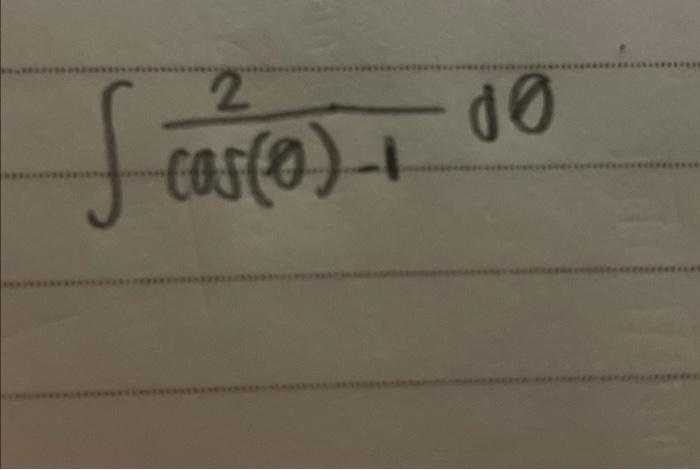 ∫ 2/(cos(θ)-1) dθ